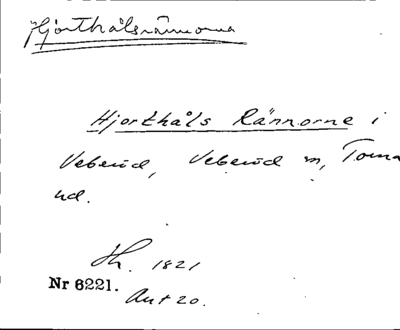 Hjorthålsrännorna
Hjorthåls Rännorne i
Veberöd, Veberöd sn, Torna
hd.
Sk. 1821
Nr 6221.
Ant 20.